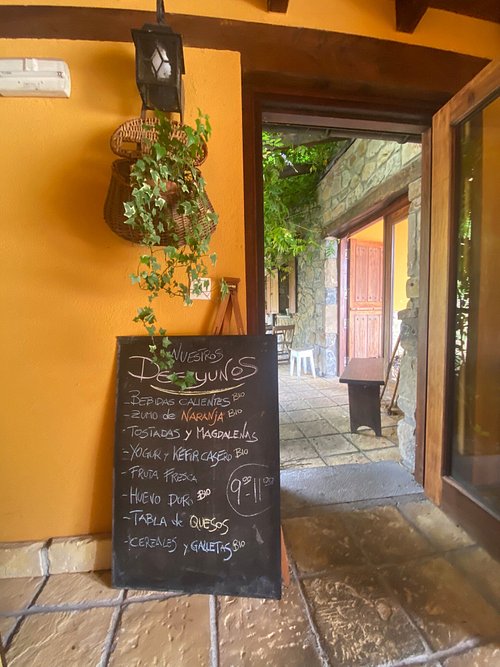 NUESTROS
DESAYUNOS
- BEBIDAS CALIENTES BIO
- ZUMO de NARANJA BIO
- TOSTADAS y MAGDALENAS
- YOGUR y KÉFIR CASERO BIO
- FRUTA FRESCA
- HUEVO DURO BIO
9:00-11:00
- TABLA de QUESOS
- CEREALES y GALLETAS BIO